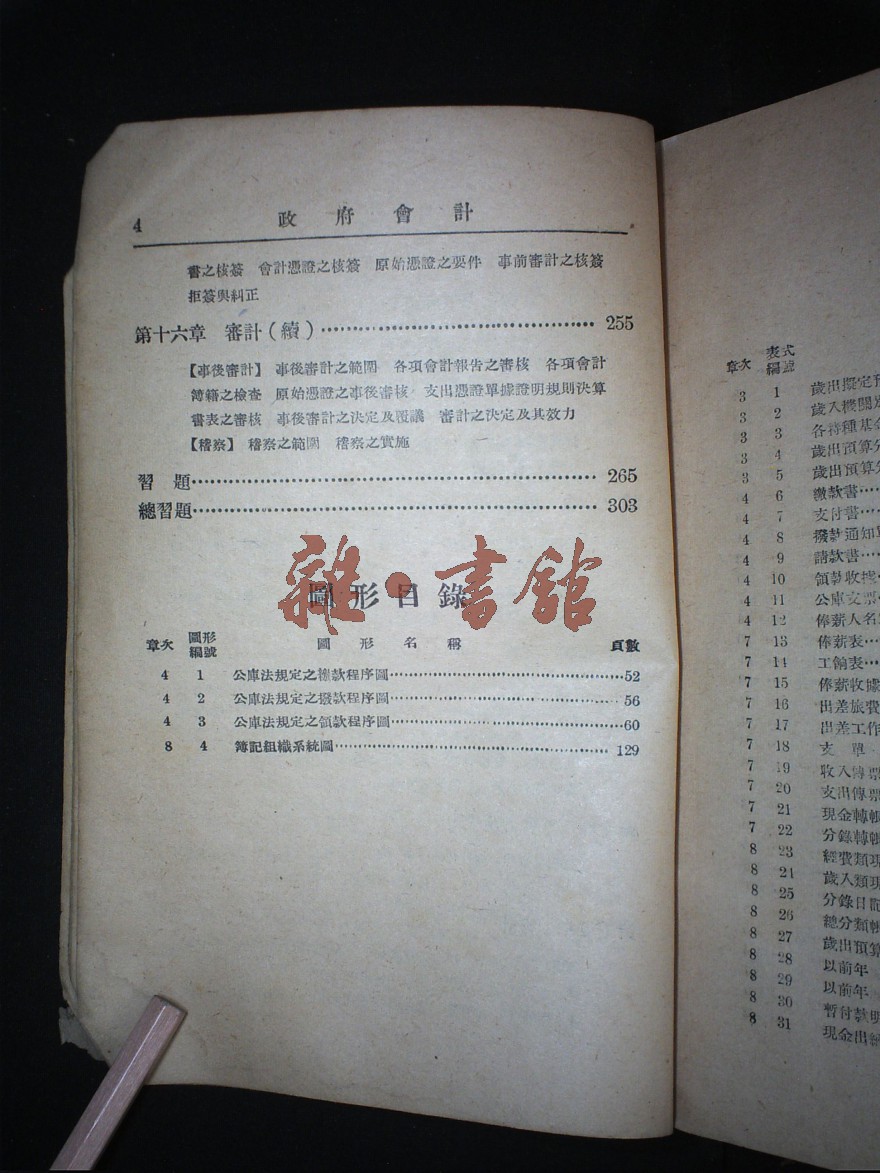 4 政府會計
書之核簽 會計憑證之核簽 原始憑證之要件 事前審計之核簽
拒簽與糾正
第十六章 審計(續)……255
【事後審計】 事後審計之範圍 各項會計報告之審核 各項會計
簿籍之檢查 原始憑證之事後審核 支出憑證單據證明規則決算
書表之審核 事後審計之決定及覆議 審計之決定及其效力
【稽察】 稽察之範圍 稽察之實施
習題……265
總習題……303
雜·書館
圖形目錄
章次 圖形編號 圖形名稱 頁數
4 1 公庫法規定之繳款程序圖……52
4 2 公庫法規定之撥款程序圖……56
4 3 公庫法規定之領款程序圖……60
8 4 簿記組織系統圖……129
章次 表式編號
3 1 歲出擬定
3 2 歲入機關
3 3 各特種基金
3 4 歲出預算分
3 5 歲出預算分
4 6 繳款書……
4 7 支付書……
4 8 撥款通知
4 9 請款書……
4 10 領款收據
4 11 公庫支票
4 12 俸薪人名
7 13 俸薪表……
7 14 工餉表……
7 15 俸薪收據
7 16 出差旅費
7 17 出差工作
7 18 支單
7 19 收入傳票
7 20 支出傳票
7 21 現金轉帳
7 22 分錄轉帳
8 23 經費類現
8 24 歲入類現
8 25 分錄日記
8 26 總分類帳
8 27 歲出預算
8 28 以前年
8 29 以前年
8 30 暫付款明
8 31 現金出納